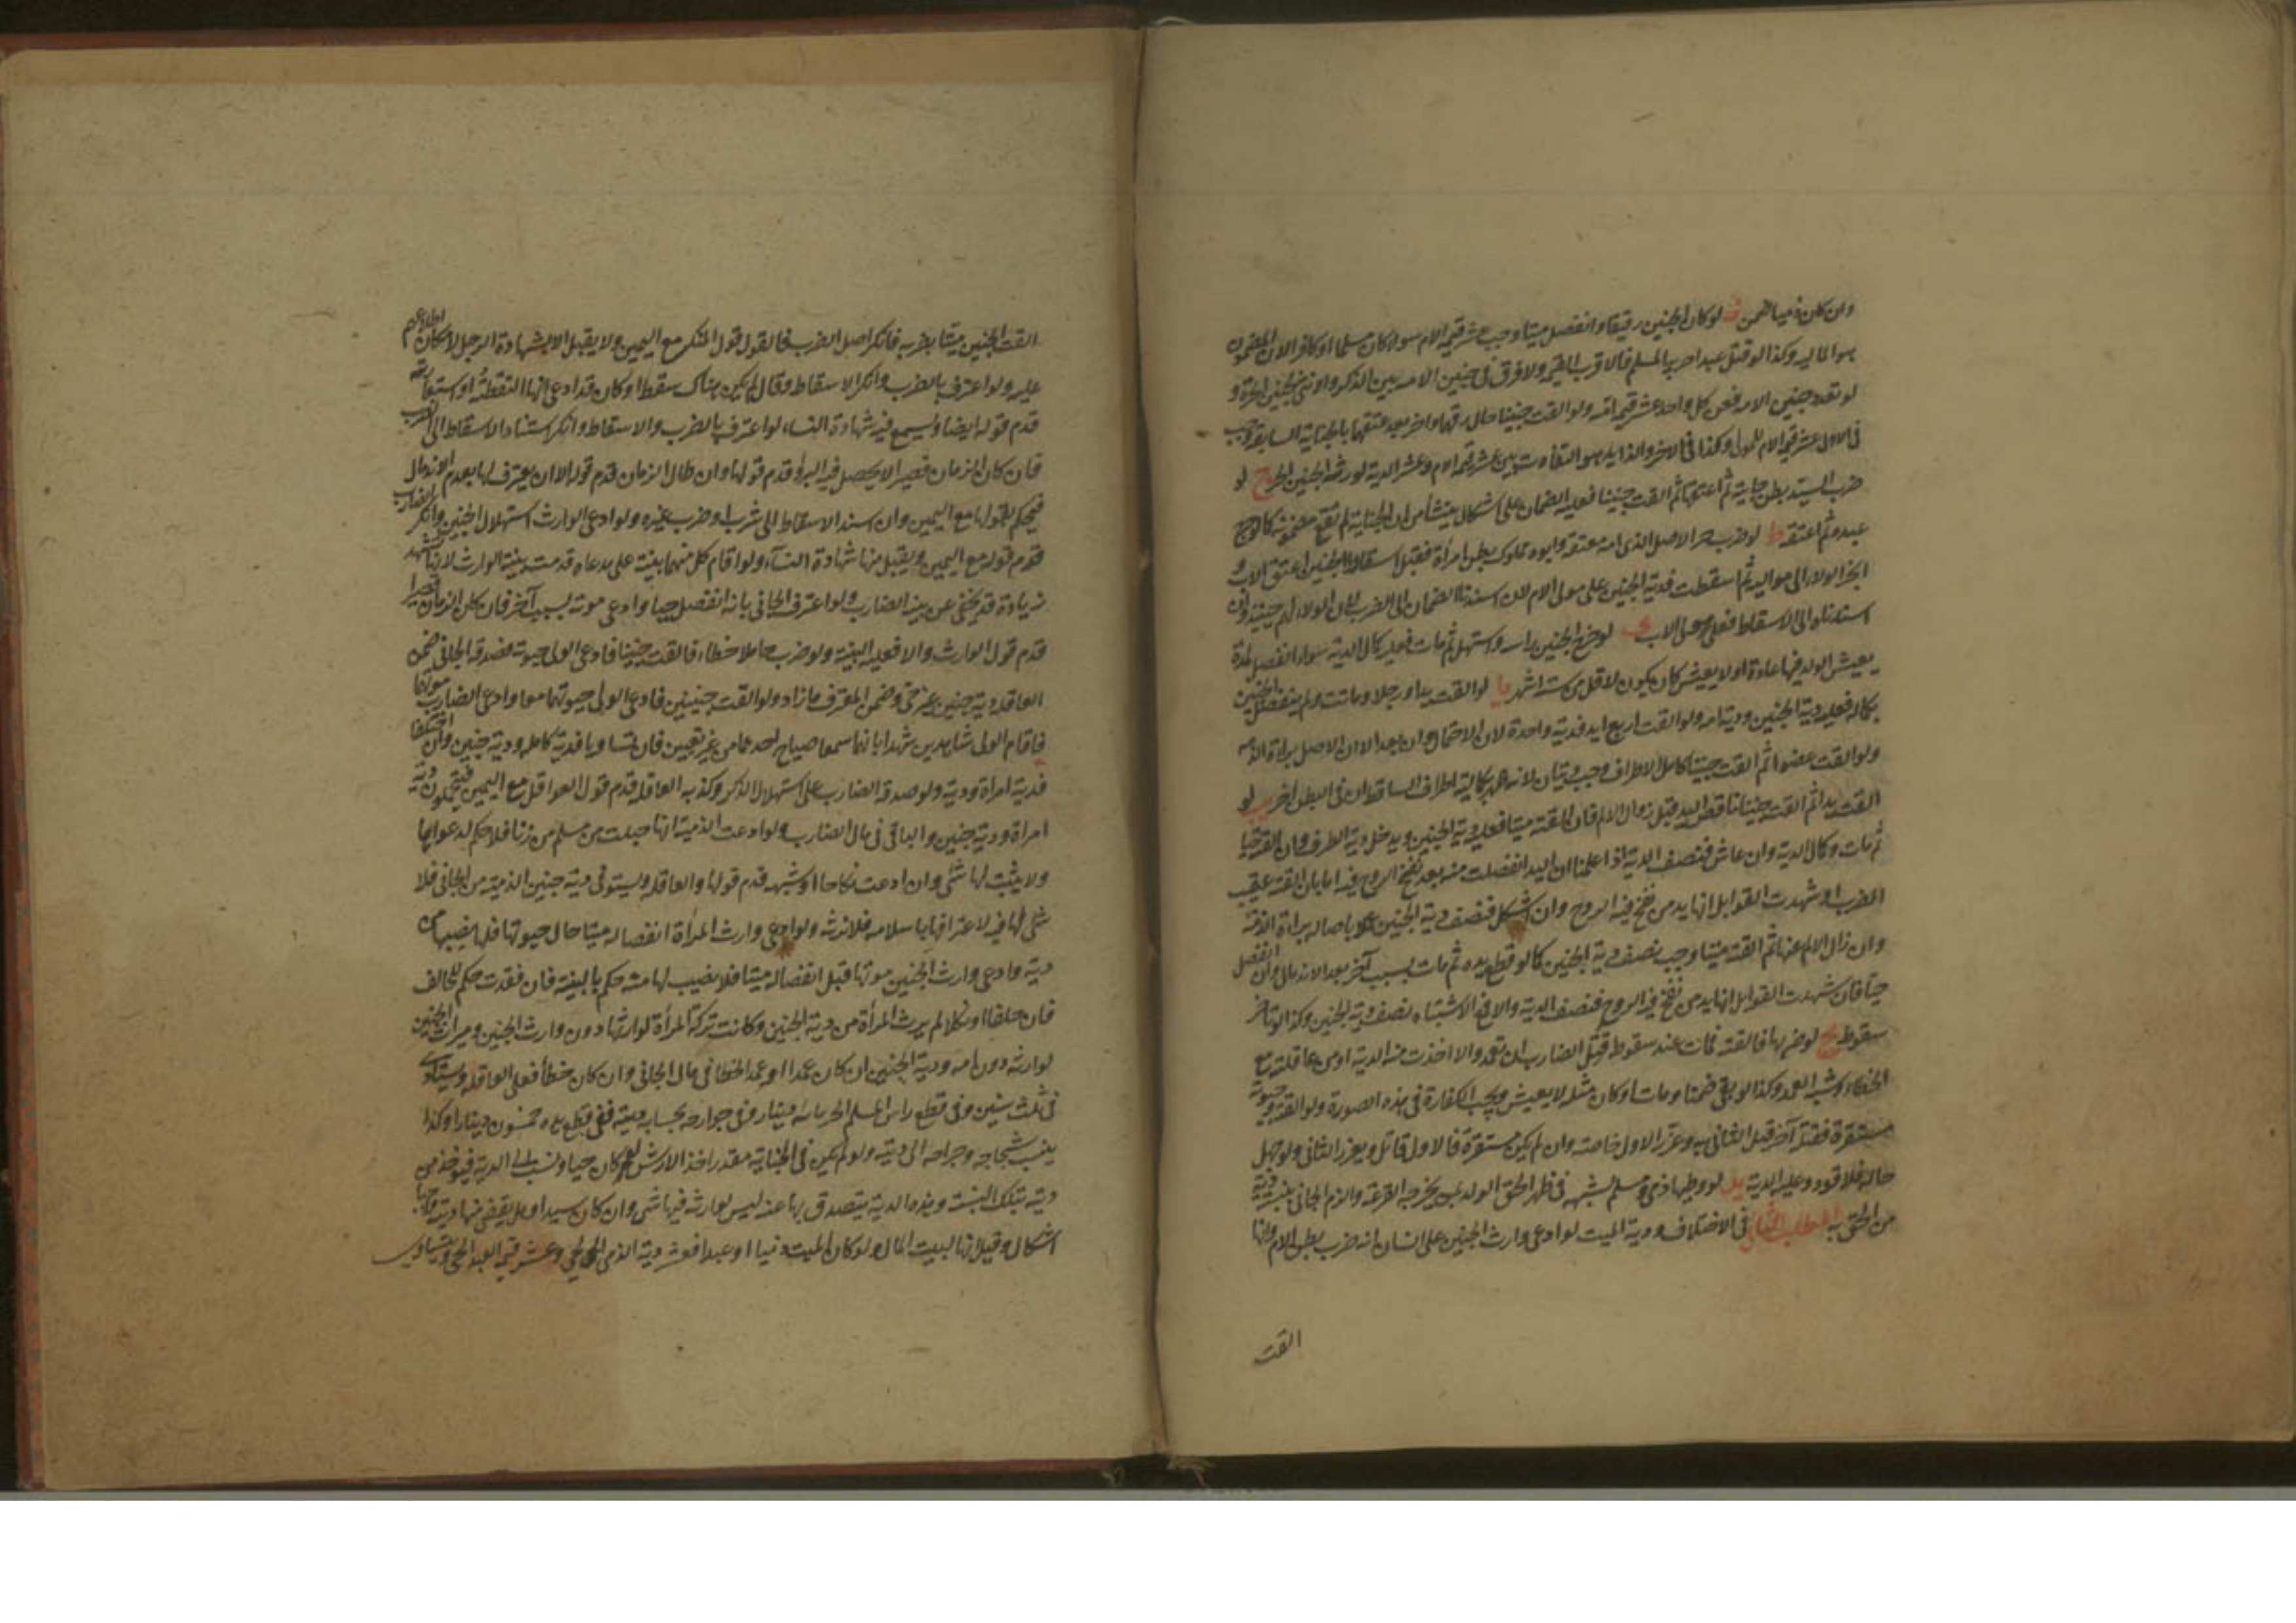 وان كان ذميا ضمن لو كان الجنين رقيقا وانفصل ميتا وجب عشر قيمة الام سواء كان مسلما او كافرا لان المضمون
هو المالية وكذا لو قتل عبدا حربيا لمسلم فالاقرب القيمة ولا فرق في جنين الامة بين الذكر والانثى كجنين الحرة و
لو تعدد جنين الامة فعن كل واحد عشر قيمة امه ولو القت جنينا حال رقها واخر بعد عتقها بالجناية السابقة وجب
في الاول عشر قيمة الام للمولى وكذا في الاخر والزايد هو التفاوت بين عشر قيمة الام وعشر الدية لورثة الجنين الحر ح لو
ضرب السيد بطن جاريته ثم اعتقها ثم القت جنينا فعليه الضمان على اشكال ينشأ من ان الجناية لم تقع مضمونة كما لو جرح
عبده ثم اعتقه ط لو ضرب حر الاصل الذي امه معتقة وابوه مملوك بطن امرأة فقبل اسقاط الجنين اعتق الاب و
انجر الولاء الى مواليه ثم اسقطت فدية الجنين على مولى الام لان اسندنا الضمان الى الضرب لان الولاء له حينئذ وان
اسندناه الى الاسقاط فعلى مولى الاب ى لو خرج الجنين راسه واستهل ثم مات فعليه كمال الدية سواء انفصل لمدة
يعيش الولد فيها عادة او لا يعيش كان يكون لاقل من ستة اشهر يا لو القت يدا ورجلا وماتت ولم ينفصل الجنين
بكماله فعليه دية الجنين ودية امه ولو القت اربع ايد فدية واحدة لان الاحتمال وان بعد الا ان الاصل براءة الذمة
ولو القت عضوا ثم القت جنينا كامل الاطراف وجب ديتان لانه ظهر بكمالية اطراف الساقط ان في البطن اخر يب لو
القت يدا ثم القت جنينا ناقص اليد قبل زوال الالم فان القته ميتا فعليه دية الجنين ويدخل دية الطرف وان القته حيا
ثم مات وكمال الدية وان عاش فنصف الدية اذا علمنا ان اليد انفصلت منه بعد نفخ الروح فيه اما بان القته عقيب
الضرب او شهدت القوابل انها يد من نفخ فيه الروح وان اشكل فنصف دية الجنين عملا باصالة براءة الذمة
وان زال الالم عنها ثم القته ميتا وجب نصف دية الجنين كما لو قطع يده ثم مات بسبب آخر بعد الاندمال وان انفصل
حيا فان شهدت القوابل انها يد من نفخ فيه الروح فنصف الدية والا في الاشتباه نصف دية الجنين وكذا لو تأخر
سقوطه يج لو ضربها فالقته فمات عند سقوطه قتل الضارب ان تعمد والا اخذت منه الدية او من عاقلته مع
الخطاء وشبه العمد وكذا لو بقي ضمنا ومات او كان مثله لا يعيش ويجب الكفارة في هذه الصورة ولو القته وحيوته
مستقرة فقتله آخر قتل الثاني به وعزر الاول خاصة وان لم يكن مستقرة فالاول قاتل ويعزر الثاني ولو جهل
حاله فلا قود وعليه الدية يد لو وطئها ذمي ومسلم بشبهة في طهر الحق الولد بمن يخرجه القرعة والزم الجاني بنسبة دية
من الحق به المطلب الثاني في الاختلاف ودية الميت لو ادعى وارث الجنين على انسان انه ضرب بطن الام وانها
القت
القت الجنين ميتا بضربه فانكر اصل الضرب فالقول قول المنكر مع اليمين ولا يقبل الا بشهادة الرجل لامكان اطلاعهم
عليه ولو اعترف بالضرب وانكر الاسقاط وقال لم يكن هناك سقط او كان وقد ادعى انها التقطته او استعارته
قدم قوله ايضا ويسمع فيه شهادة النساء لو اعترف بالضرب والاسقاط وانكر استناد الاسقاط الى الضرب
فان كان الزمان قصيرا لا يحصل فيه البرؤ قدم قولها وان طال الزمان قدم قوله الا ان يعترف لها بعدم الاندمال
فيحكم لقولها مع اليمين وان اسند الاسقاط الى شرب او ضرب غيره ولو ادعى الوارث استهلال الجنين وانكر الضارب
قدم قوله مع اليمين ويقبل منها شهادة النساء ولو اقام كل منهما بينة على مدعاه قدمت بينة الوارث لانها تشهد
بزيادة قد يخفى عن بينة الضارب ولو اعترف الجاني بانه انفصل حيا وادعى موته بسبب آخر فان كان الزمان قصيرا
قدم قول الوارث والا فعليه البينة ولو ضرب حاملا خطاء فالقت جنينا فادعى الولي حيوته فصدقه الجاني ضمن
العاقلة دية جنين غير حي وضمن المعترف ما زاد ولو القت جنينين فادعى الولي حيوتهما معا وادعى الضارب موتهما
فاقام الولي شاهدين شهدا بانهما سمعا صياح احدهما من غير تعيين فان تساويا فدية كاملة ودية جنين وان اختلفا
فدية امرأة ودية ولو صدقه الضارب على استهلال الذكر وكذبه العاقلة قدم قول العواقل مع اليمين فيتحملون دية
امراة ودية جنين والباقي في مال الضارب ولو ادعت الذمية انها حبلت من مسلم من زنا فلا حكم لدعواها
ولا يثبت لها شئ وان ادعت نكاحا او شبهة قدم قولها والعاقلة ويستوفى دية جنين الذمية من الجاني فلا
شئ لها فيه لاعترافها باسلامه فلا ترثه ولو ادعى وارث المرأة انفصاله ميتا حال حيوتها فلها نصيبها من
ديته وادعى وارث الجنين موتها قبل انفصاله ميتا فلا نصيب لها منه حكم بالبينة فان فقدت حكم للحالف
فان حلفا او نكلا لم يرث المرأة من دية الجنين وكانت تركة المرأة لوارثها دون وارث الجنين وميراث الجنين
لوارثه دون امه ودية الجنين ان كان عمدا او عمد الخطا في مال الجاني وان كان خطأ فعلى العاقلة ويستأدى
في ثلث سنين وفي قطع راس المسلم الحر مائة دينار وفي جوارحه بحساب ديته ففي قطع يده خمسون دينارا وكذا
ينسب شجاجه وجراحه الى ديته ولو لم يكن في الجناية مقدر اخذ الارش لو كان حيا ونسب الى الدية فيؤخذ من
ديته بتلك النسبة وهذه الدية يتصدق بها عنه ليس لوارثه فيها شئ وان كان سيدا وهل يقضى منها ديته وجها
اشكال وقيل انها لبيت المال ولو كان الميت ذميا او عبدا فعشر دية الذمي الحي وعشر قيمة العبد الحي ويتساوى